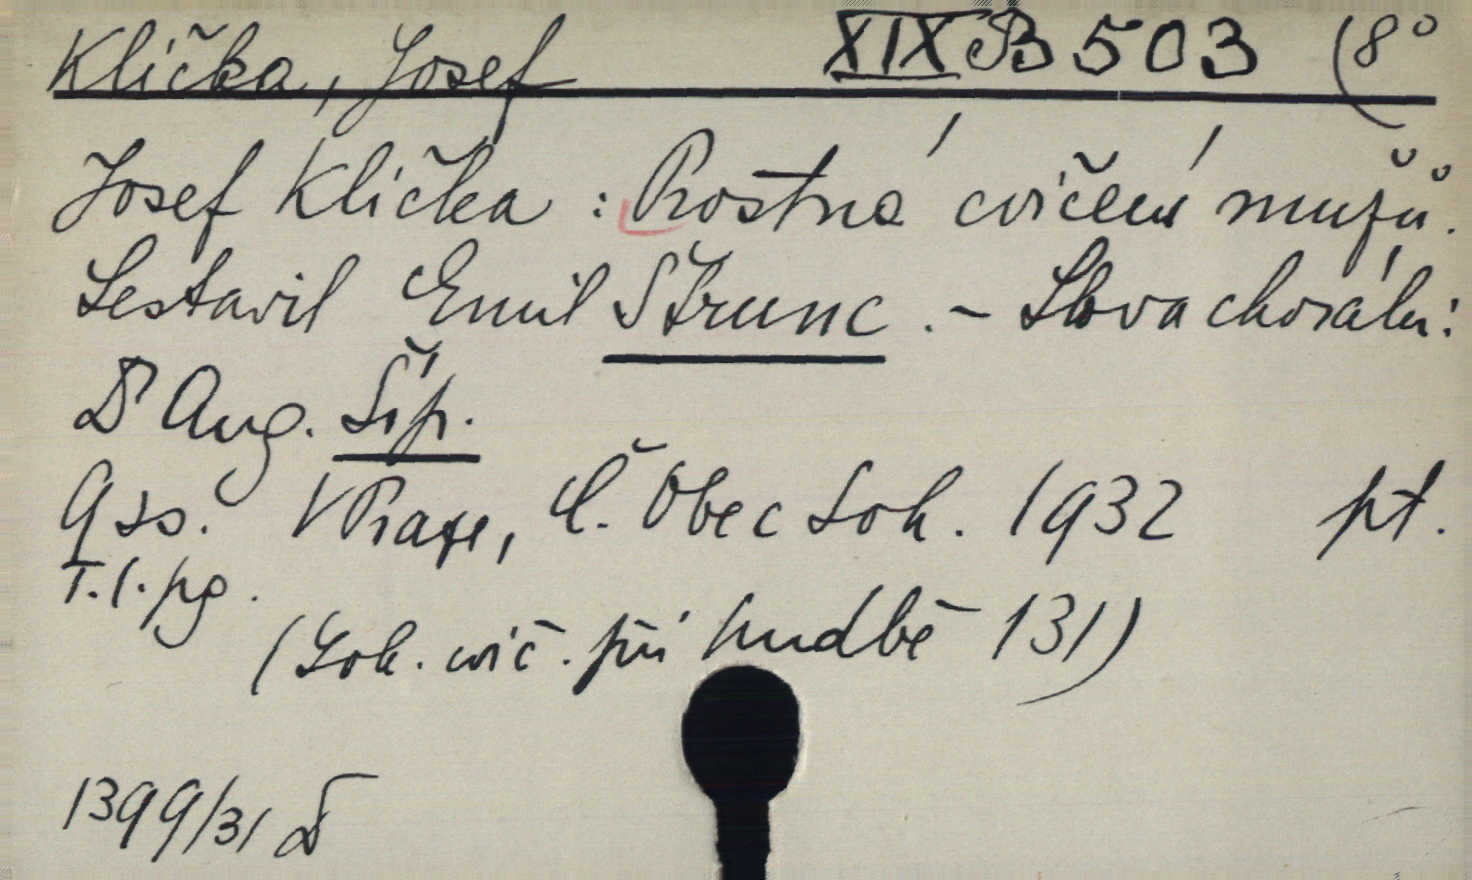 Klička, Josef XIX B 503 (8°
Josef Klička : Prostná cvičení mužů.
Sestavil Emil Štrunc. - Slova chorálu:
Dr Aug. Šíp.
9 ss. V Praze, Č. Obec Sok. 1932 pt.
T. l. pg.
(Sok. cvič. při hudbě 131)
1399/31 D